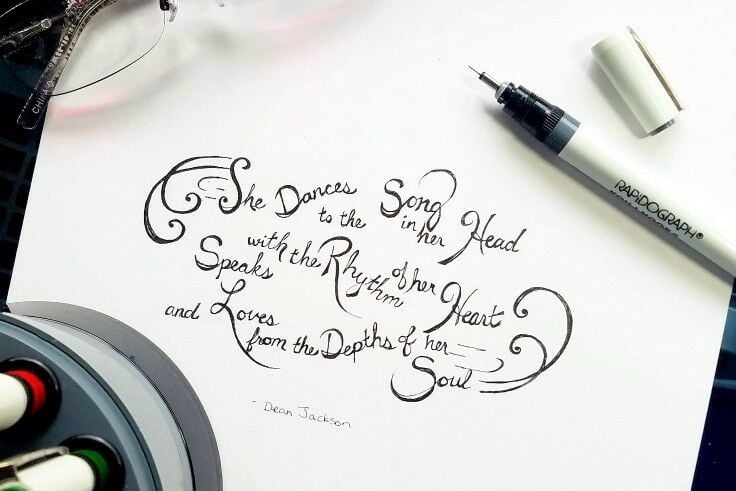 She Dances to the Song in her Head
Speaks with the Rhythm of her Heart
and Loves from the Depths of her Soul
- Dean Jackson
RAPIDOGRAPH®
CHINA